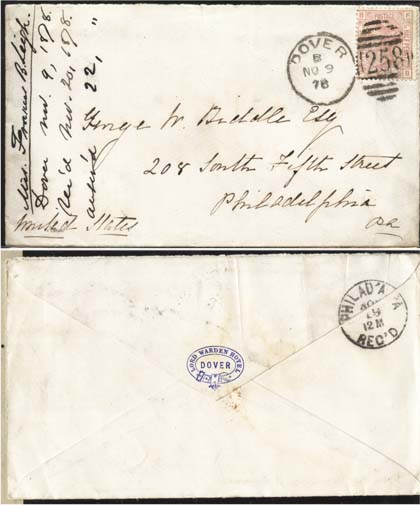 Mrs. Frances B. Leigh.
Dover Nov. 9, 1878.
Rec'd Nov. 20, 1878.
ans'd " 22, "
DOVER
B
NO 9
78
258
George W. Biddle Esq
208 South Fifth Street
Philadelphia
Pa
United States
PHILAD'A PA
19
12M
REC'D
LORD WARDEN HOTEL
DOVER